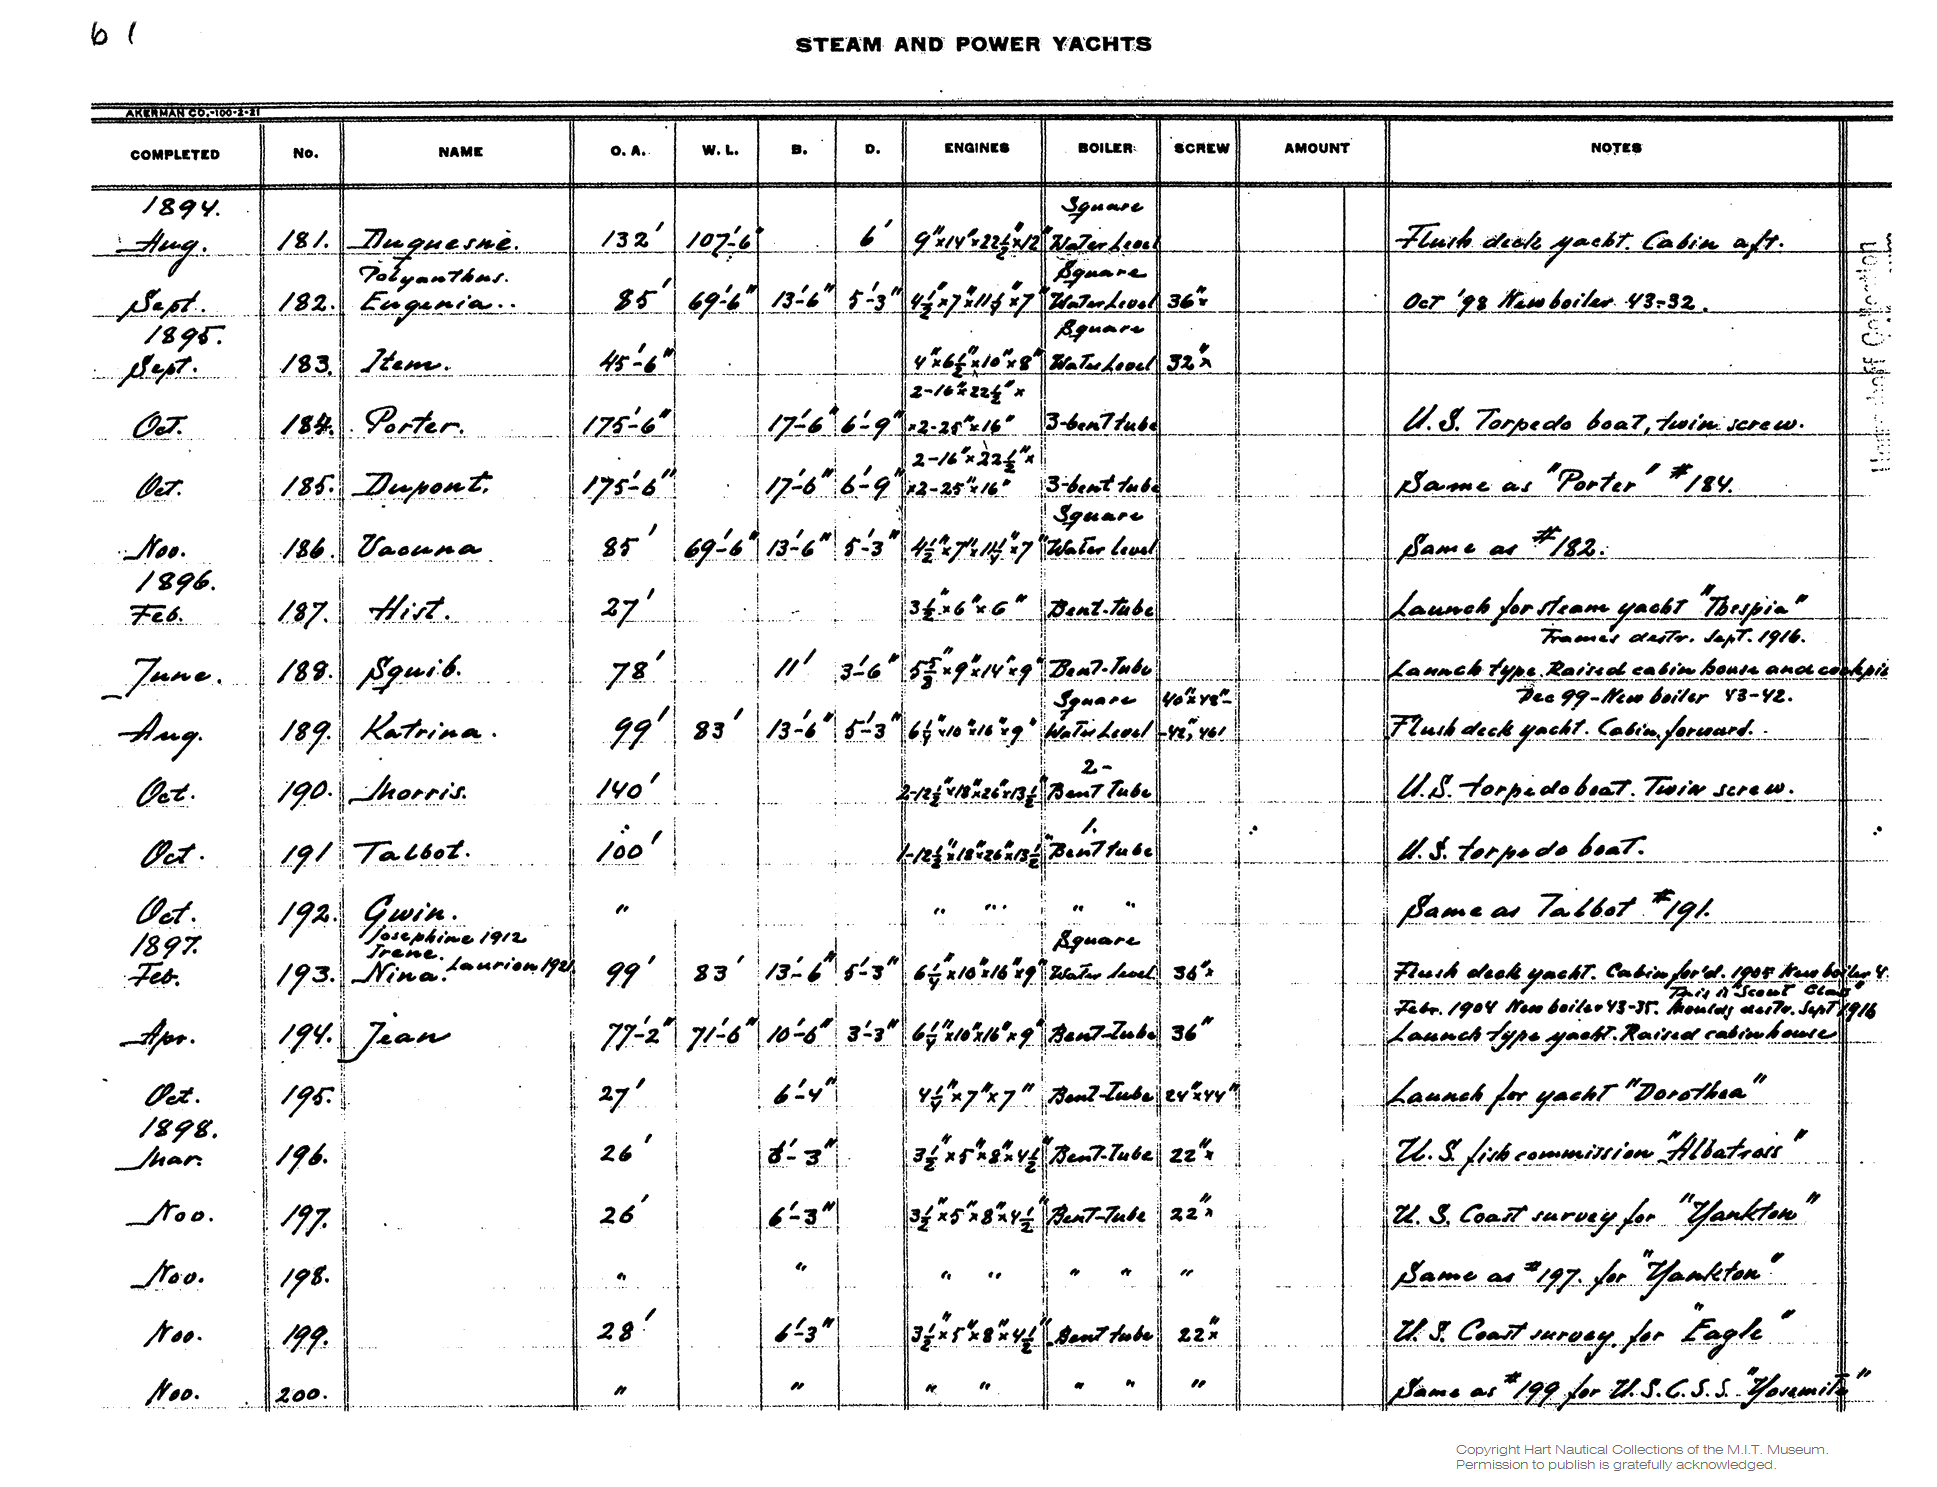 61
STEAM AND POWER YACHTS
AKERMAN CO.-100-2-21
COMPLETED No. NAME O. A. W. L. B. D. ENGINES BOILER SCREW AMOUNT NOTES
1894. Square
Aug. 181. Duquesne. 132' 107'-6" 6' 9"x14"x22½"x12" Water Level Flush deck yacht. Cabin aft.
Polyanthus. Square
Sept. 182. Eugenia.. 85' 69'-6" 13'-6" 5'-3" 4½"x7"x11¼"x7" Water Level 36"x Oct '98 New boiler 43-32.
1895. Square
Sept. 183. Item. 45'-6" 4"x6½"x10"x8" Water Level 32"x
2-16"x22½"x
Oct. 184. Porter. 175'-6" 17'-6" 6'-9" x2-25"x16" 3-bent tube U. S. Torpedo boat, twin screw.
2-16"x22½"x
Oct. 185. Dupont. 175'-6" 17'-6" 6'-9" x2-25"x16" 3-bent tube Same as "Porter" #184.
Square
Nov. 186. Vacuna 85' 69'-6" 13'-6" 5'-3" 4½"x7"x11¼"x7" Water Level Same as #182.
1896.
Feb. 187. Hist. 27' 3½"x6"x6" Bent-tube Launch for steam yacht "Thespia"
Frames destr. Sept. 1916.
June. 188. Squib. 78' 11' 3'-6" 5⅝"x9"x14"x9" Bent-Tube Launch type. Raised cabin house and cockpit
Square 40"x48"- Dec 99-New boiler 43-42.
Aug. 189. Katrina. 99' 83' 13'-6" 5'-3" 6¼"x10"x16"x9" Water Level -42", 461 Flush deck yacht. Cabin forward.
2-
Oct. 190. Morris. 140' 2-12½"x18"x26"x13½" Bent Tube U.S. torpedo boat. Twin screw.
1.
Oct. 191 Talbot. 100' 1-12½"x18"x26"x13½" Bent tube U.S. torpedo boat.
Oct. 192. Gwin. " " " " " Same as Talbot #191.
Josephine 1912
1897. Irene. Square
Feb. 193. Nina. Laurion 1921. 99' 83' 13'-6" 5'-3" 6¼"x10"x16"x9" Water Level 36"x Flush deck yacht. Cabin for'd. 1905 New boiler 4.
This is "Scout Class"
Febr. 1904 New boiler 43-35. Moulds destr. Sept 1916
Apr. 194. Jean 77'-2" 71'-6" 10'-6" 3'-3" 6¼"x10"x16"x9" Bent-Tube 36" Launch type yacht. Raised cabin house
Oct. 195. 27' 6'-4" 4¼"x7"x7" Bent-Tube 24"x44" Launch for yacht "Dorothea"
1898.
Mar. 196. 26' 6'-3" 3½"x5"x8"x4½" Bent-Tube 22"x U. S. fish commission "Albatross"
Nov. 197. 26' 6'-3" 3½"x5"x8"x4½" Bent-Tube 22"x U. S. Coast survey for "Yankton"
Nov. 198. " " " " " " " Same as #197. for "Yankton"
Nov. 199. 28' 6'-3" 3½"x5"x8"x4½" Bent tube 22"x U. S. Coast survey. for "Eagle"
Nov. 200. " " " " " " " Same as #199 for U.S.C.S.S. "Yosemite"
Copyright Hart Nautical Collections of the M.I.T. Museum.
Permission to publish is gratefully acknowledged.